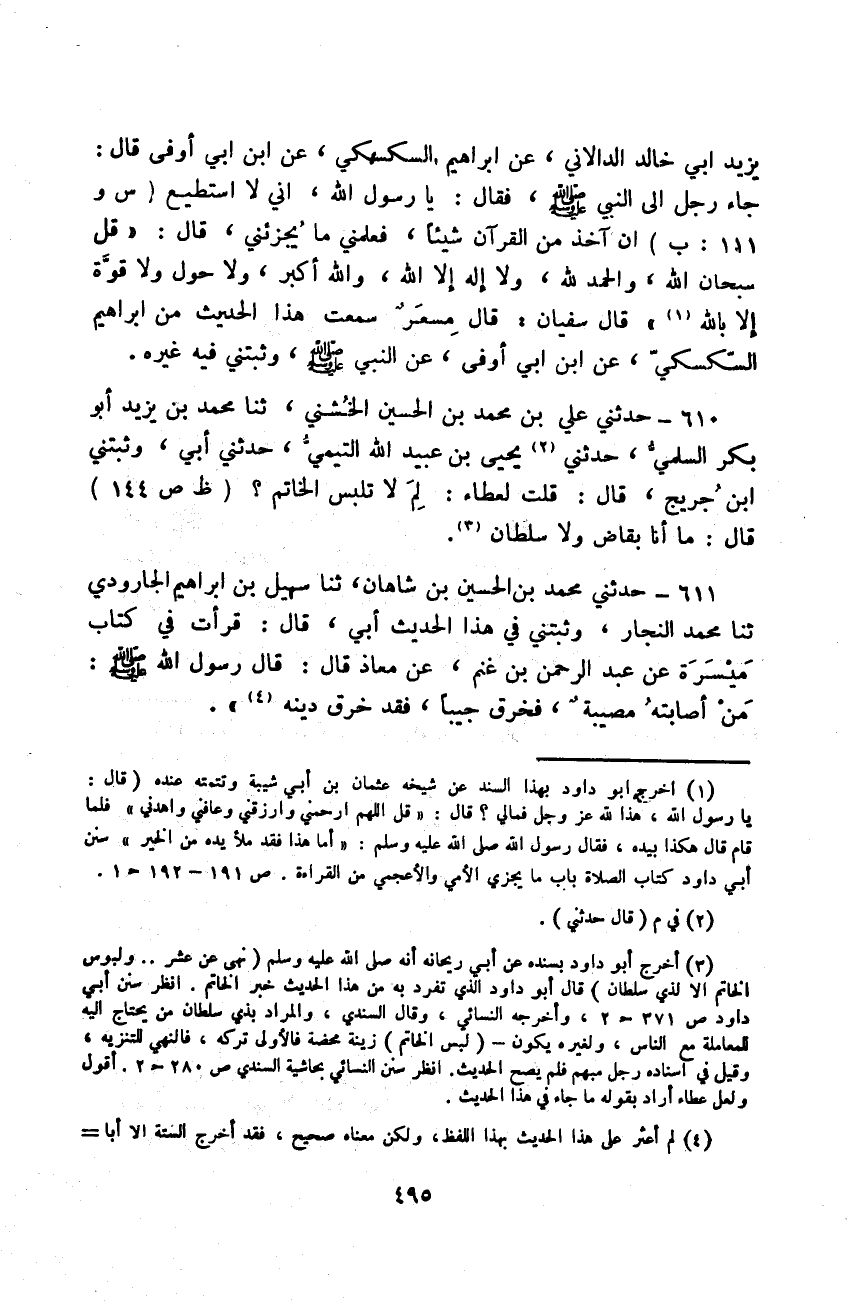 يزيد ابي خالد الدالاني ، عن ابراهيم السكسكي ، عن ابن ابي أوفى قال :
جاء رجل الى النبي ﷺ ، فقال : يا رسول الله ، اني لا استطيع ( س و
١١١ : ب ) ان آخذ من القرآن شيئاً ، فعلمني ما يُجزئني ، قال : « قل
سبحان الله ، والحمد لله ، ولا إله إلا الله ، والله أكبر ، ولا حول ولا قوَّة
إلا بالله (١) » قال سفيان : قال مِسعَرٌ سمعت هذا الحديث من ابراهيم
السَّكسكيّ ، عن ابن ابي أوفى ، عن النبي ﷺ ، وثبتني فيه غيره .
٦١٠ – حدثني علي بن محمد بن الحسين الخُشني ، ثنا محمد بن يزيد أبو
بكر السلميُّ ، حدثني (٢) يحيى بن عبيد الله التيميُّ ، حدثني أبي ، وثبتني
ابن جُريج ، قال : قلت لعطاء : لِمَ لا تلبس الخاتم ؟ ( ظ ص ١٤٤ )
قال : ما أنا بقاض ولا سلطان (٣) .
٦١١ – حدثني محمد بن الحسين بن شاهان ، ثنا سهيل بن ابراهيم الجارودي
ثنا محمد النجار ، وثبتني في هذا الحديث أبي ، قال : قرأت في كتاب
مَيْسَرَة عن عبد الرحمن بن غنم ، عن معاذ قال : قال رسول الله ﷺ :
مَنْ أصابتهُ مصيبةٌ ، فخرق جيباً ، فقد خرق دينه (٤) » .
(١) اخرجه ابو داود بهذا السند عن شيخه عثمان بن أبي شيبة وتتمته عنده ( قال :
يا رسول الله ، هذا لله عز وجل فمالي ؟ قال : « قل اللهم ارحمني وارزقني وعافني واهدني » فلما
قام قال هكذا بيده ، فقال رسول الله صلى الله عليه وسلم : « أما هذا فقد ملأ يده من الخير » سنن
أبي داود كتاب الصلاة باب ما يجزي الأمي والأعجمي من القراءة . ص ١٩١ – ١٩٢ ح ١ .
(٢) في م ( قال حدثني ) .
(٣) أخرج أبو داود بسنده عن أبي ريحانه أنه صلى الله عليه وسلم ( نهى عن عشر .. ولبوس
الخاتم الا لذي سلطان ) قال أبو داود الذي تفرد به من هذا الحديث خبر الخاتم . انظر سنن أبي
داود ص ٣٧١ ح ٢ ، وأخرجه النسائي ، وقال السندي ، والمراد بذي سلطان من يحتاج اليه
للمعاملة مع الناس ، ولغيره يكون – ( لبس الخاتم ) زينة محضة فالأولى تركه ، فالنهي للتنزيه ،
وقيل في اسناده رجل مبهم فلم يصح الحديث . انظر سنن النسائي بحاشية السندي ص ٢٨٠ ح ٢ . أقول
ولعل عطاء أراد بقوله ما جاء في هذا الحديث .
(٤) لم أعثر على هذا الحديث بهذا اللفظ ، ولكن معناه صحيح ، فقد أخرج الستة الا أبا =
٤٩٥